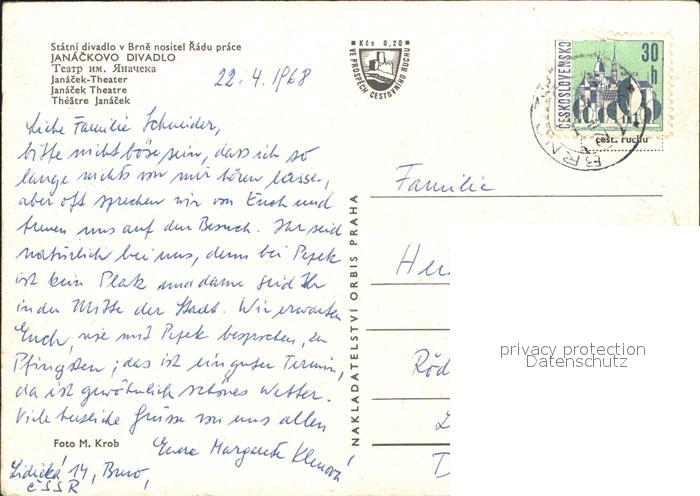 Státní divadlo v Brně nositel Řádu práce
JANÁČKOVO DIVADLO
Театр им. Яначека
Janáček-Theater
Janáček Theatre
Théâtre Janáček
22.4.1968
Kčs 0,20
VE PROSPĚCH CESTOVNÍHO RUCHU
ČESKOSLOVENSKO
30 h
BRNO
cest. ruchu
Liebe Familie Schneider,
bitte nicht böse sein, dass ich so
lange nichts von mir hören lasse,
aber oft sprechen wir von Euch und
freuen uns auf den Besuch. Ihr seid
natürlich bei uns, denn bei Pepek
ist kein Platz und dann seid Ihr
in der Mitte der Stadt. Wir erwarten
Euch, wie mit Pepek besprochen, zu
Pfingsten; das ist ein guter Termin,
da ist gewöhnlich schönes Wetter.
Viele herzliche Grüsse von uns allen
Eure Margarete
Foto M. Krob
Lidická 14, Brno,
ČSSR
NAKLADATELSTVÍ ORBIS PRAHA
Familie
privacy protection
Datenschutz